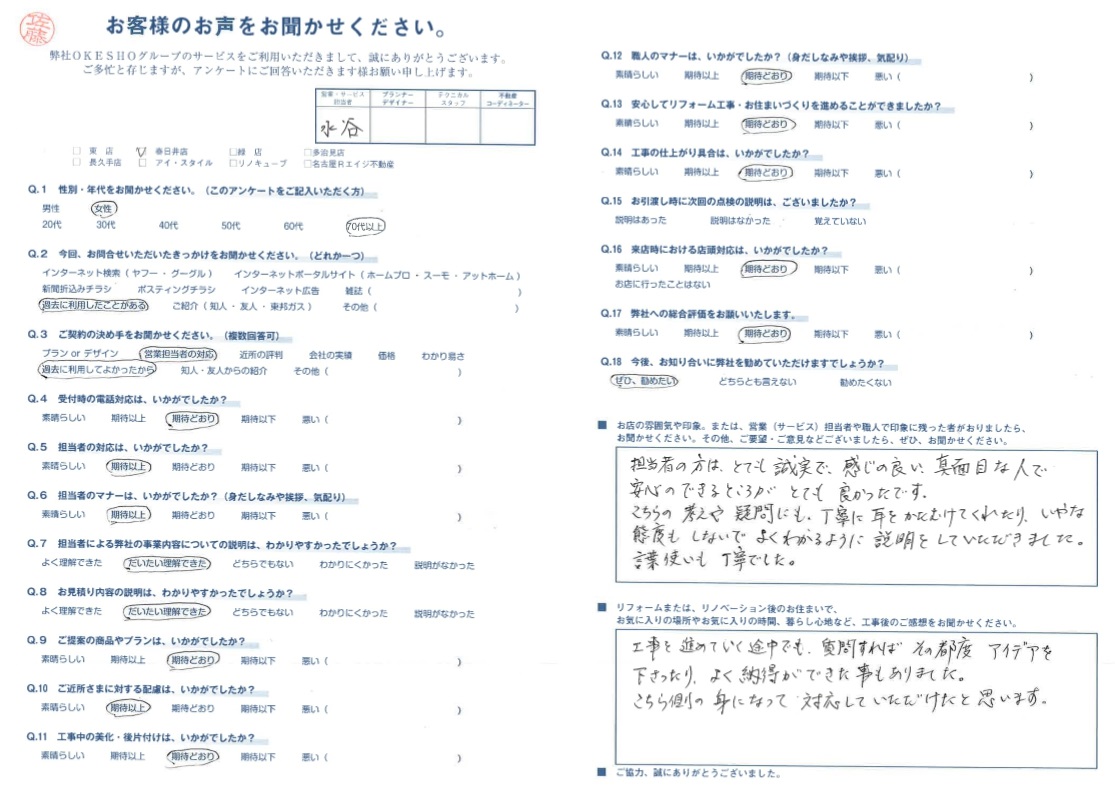 佐藤
お客様のお声をお聞かせください。
弊社OKESHOグループのサービスをご利用いただきまして、誠にありがとうございます。
ご多忙と存じますが、アンケートにご回答いただきます様お願い申し上げます。
営業・サービス担当者 プランナーデザイナー テクニカルスタッフ 不動産コーディネーター
水谷
□ 東 店 ☑ 春日井店 □緑 店 □多治見店
□ 長久手店 □ アイ・スタイル □リノキューブ □名古屋Rエイジ不動産
Q.1 性別・年代をお聞かせください。（このアンケートをご記入いただく方）
男性 女性
20代 30代 40代 50代 60代 70代以上
Q.2 今回、お問合せいただいたきっかけをお聞かせください。（どれか一つ）
インターネット検索（ ヤフー ・ グーグル ） インターネットポータルサイト（ ホームプロ ・ スーモ ・ アットホーム ）
新聞折込みチラシ ポスティングチラシ インターネット広告 雑誌（ ）
過去に利用したことがある ご紹介（ 知人 ・ 友人 ・ 東邦ガス ） その他（ ）
Q.3 ご契約の決め手をお聞かせください。（複数回答可）
プラン or デザイン 営業担当者の対応 近所の評判 会社の実績 価格 わかり易さ
過去に利用してよかったから 知人・友人からの紹介 その他（ ）
Q.4 受付時の電話対応は、いかがでしたか？
素晴らしい 期待以上 期待どおり 期待以下 悪い（ ）
Q.5 担当者の対応は、いかがでしたか？
素晴らしい 期待以上 期待どおり 期待以下 悪い（ ）
Q.6 担当者のマナーは、いかがでしたか？（身だしなみや挨拶、気配り）
素晴らしい 期待以上 期待どおり 期待以下 悪い（ ）
Q.7 担当者による弊社の事業内容についての説明は、わかりやすかったでしょうか？
よく理解できた だいたい理解できた どちらでもない わかりにくかった 説明がなかった
Q.8 お見積り内容の説明は、わかりやすかったでしょうか？
よく理解できた だいたい理解できた どちらでもない わかりにくかった 説明がなかった
Q.9 ご提案の商品やプランは、いかがでしたか？
素晴らしい 期待以上 期待どおり 期待以下 悪い（ ）
Q.10 ご近所さまに対する配慮は、いかがでしたか？
素晴らしい 期待以上 期待どおり 期待以下 悪い（ ）
Q.11 工事中の美化・後片付けは、いかがでしたか？
素晴らしい 期待以上 期待どおり 期待以下 悪い（ ）
Q.12 職人のマナーは、いかがでしたか？（身だしなみや挨拶、気配り）
素晴らしい 期待以上 期待どおり 期待以下 悪い（ ）
Q.13 安心してリフォーム工事・お住まいづくりを進めることができましたか？
素晴らしい 期待以上 期待どおり 期待以下 悪い（ ）
Q.14 工事の仕上がり具合は、いかがでしたか？
素晴らしい 期待以上 期待どおり 期待以下 悪い（ ）
Q.15 お引渡し時に次回の点検の説明は、ございましたか？
説明はあった 説明はなかった 覚えていない
Q.16 来店時における店頭対応は、いかがでしたか？
素晴らしい 期待以上 期待どおり 期待以下 悪い（ ）
お店に行ったことはない
Q.17 弊社への総合評価をお願いいたします。
素晴らしい 期待以上 期待どおり 期待以下 悪い（ ）
Q.18 今後、お知り合いに弊社を勧めていただけますでしょうか？
ぜひ、勧めたい どちらとも言えない 勧めたくない
■ お店の雰囲気や印象。または、営業（サービス）担当者や職人で印象に残った者がおりましたら、
お聞かせください。その他、ご要望・ご意見などございましたら、ぜひ、お聞かせください。
担当者の方は、とても誠実で、感じの良い、真面目な人で
安心のできるところが とても 良かったです。
こちらの 考えや 疑問にも、丁寧に 耳をかたむけてくれたり、いやな
態度も しないで よくわかるように 説明をしていただきました。
言葉使いも 丁寧でした。
■ リフォームまたは、リノベーション後のお住まいで、
お気に入りの場所やお気に入りの時間、暮らし心地など、工事後のご感想をお聞かせください。
工事を進めていく途中でも、質問すれば その都度 アイデアを
下さったり、よく納得ができた事もありました。
こちら側の 身になって 対応していただけたと思います。
■ ご協力、誠にありがとうございました。